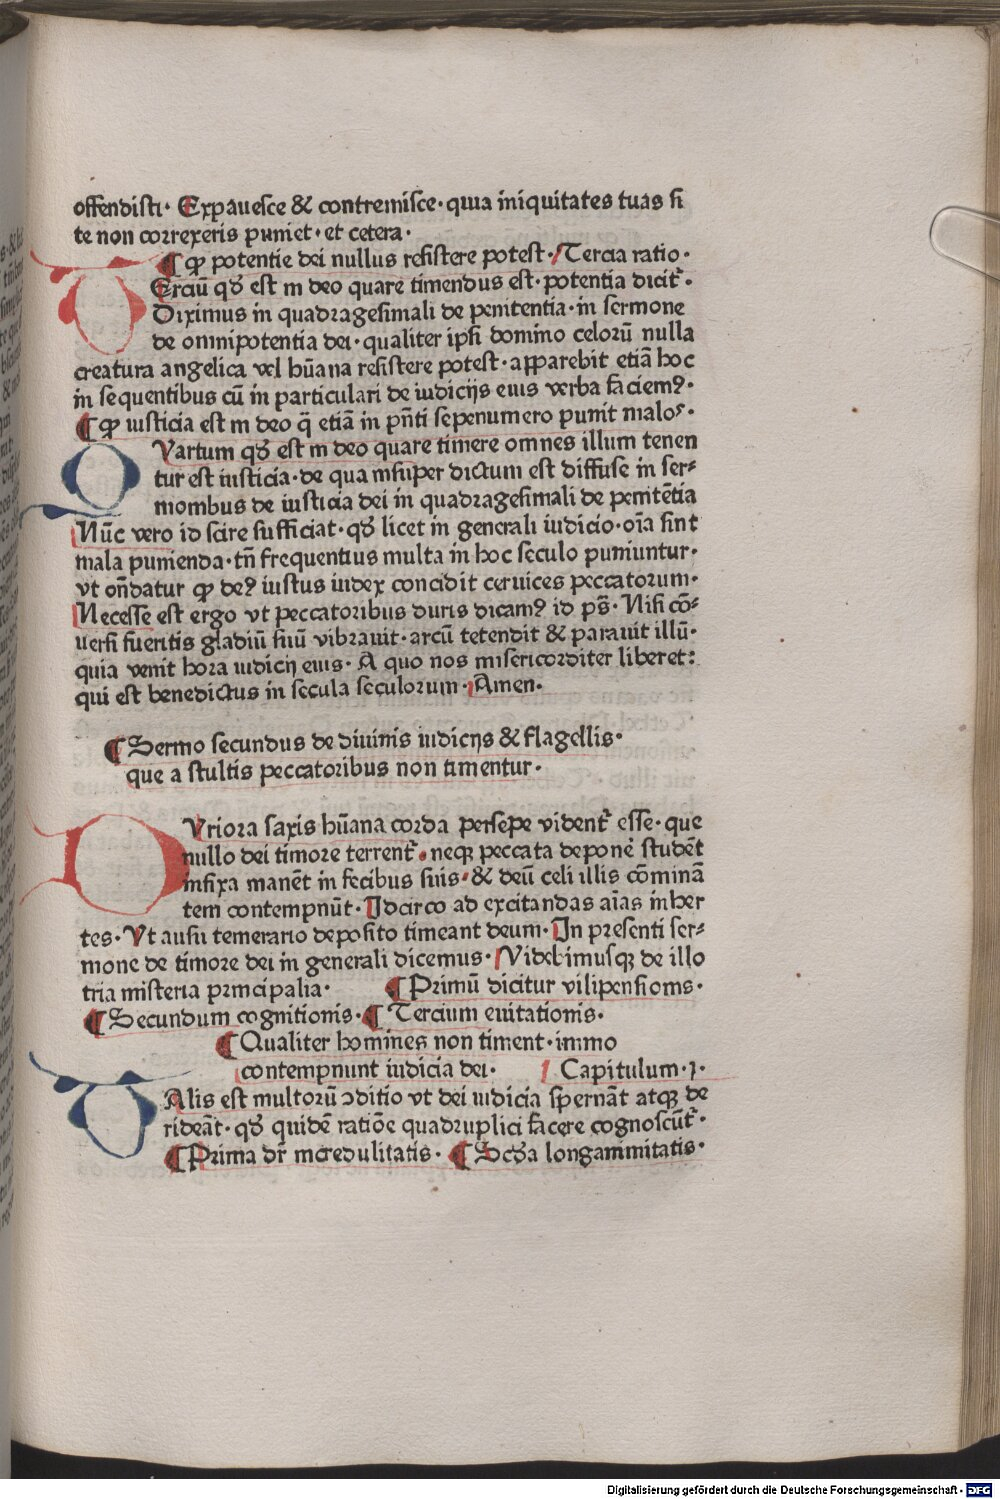 offendisti· Expauesce & contremisce· quia iniquitates tuas si
te non correxeris puniet· et cetera·
¶ ꝙ potentie dei nullus resistere potest· Tercia ratio·
TErciū qđ est in deo quare timendus est· potentia dicit᷑·
Diximus in quadragesimali de penitentia· in sermone
de omnipotentia dei· qualiter ipsi domino celorū nulla
creatura angelica vel hūana resistere potest· apparebit etiā hoc
in sequentibus cū in particulari de iudicijs eius verba faciemꝰ·
¶ ꝙ iusticia est in deo q̄ etiā in pn̄ti sepenumero punit malos·
QVartum qđ est in deo quare timere omnes illum tenen
tur est iusticia· de qua insuper dictum est diffuse in ser⸗
monibus de iusticia dei in quadragesimali de penitētia
Nūc vero id scire sufficiat· qđ licet in generali iudicio· oīa sint
mala punienda· tn̄ frequentius multa in hoc seculo puniuntur·
vt on̄datur ꝙ deꝰ iustus iudex concidit ceruices peccatorum·
Necesse est ergo vt peccatoribus duris dicamꝰ id ps̄· Nisi cō⸗
uersi fueritis gladiū suū vibrauit· arcū tetendit & parauit illū·
quia venit hora iudicij eius· A quo nos misericorditer liberet:
qui est benedictus in secula seculorum· Amen·
¶ Sermo secundus de diuinis iudicijs & flagellis·
que a stultis peccatoribus non timentur·
DVriora saxis hūana corda persepe vident᷑ esse· que
nullo dei timore terrent᷑· neqꝫ peccata deponē studēt
infixa manēt in fecibus suis· & deū celi illis cōminā
tem contempnūt· Idcirco ad excitandas aīas inher
tes· Vt ausu temerario deposito timeant deum· In presenti ser⸗
mone de timore dei in generali dicemus· Videbimusqꝫ de illo
tria misteria principalia· ¶ Primū dicitur vilipensionis·
¶ Secundum cognitionis· ¶ Tercium euitationis·
¶ Qualiter homines non timent· immo
contempnunt iudicia dei· Capitulum·j·
TAlis est multorū ↄditio vt dei iudicia spernāt atqꝫ de
rideāt· qđ quidē ratiōe quadruplici facere cognoscūt᷑·
¶ Prima dr̄ incredulitatis· ¶ Scđa longanimitatis·
Digitalisierung gefördert durch die Deutsche Forschungsgemeinschaft · DFG